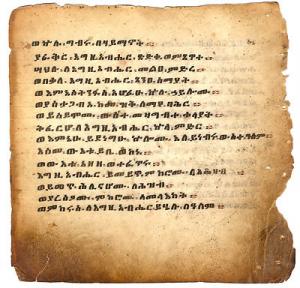 ወኵሉ ፡ ግብሩ ፡ በሃይማኖት
ያፈቅር ፡ እግዚአብሔር ፡ ጽድቀ ፡ ወምጽዋተ
ሣህሉ ፡ ለእግዚአብሔር ፡ መልአ ፡ ምድረ
ወበቃለ ፡ እግዚአብሔር ፡ ጸንዓ ፡ ሰማያት
ወእምእስትንፋሰ ፡ አፉሁ ፡ ኵሉ ፡ ኀይሎሙ
ዘያስተጋብኦ ፡ ከመ ፡ ዝቅ ፡ ለማየ ፡ ባሕር
ወይሠይሞሙ ፡ ውስተ ፡ መዛግብተ ፡ ቀላያት
ትፈርሆ ፡ ለእግዚአብሔር ፡ ኵላ ፡ ምድር
ወእምኔሁ ፡ ይደነግፁ ፡ ኵሎሙ ፡ እለ ፡ ይነብሩ ፡ ውስተ ፡ ዓለም
እስመ ፡ ውእቱ ፡ ይቤ ፡ ወኮኑ
ወውእቱ ፡ አዘዘ ፡ ወተፈጥሩ
እግዚአብሔር ፡ ይመይጥ ፡ ምክሮሙ ፡ ለአሕዛብ
ወይመይጥ ፡ ሕሊናሆሙ ፡ ለሕዝብ
ወያረስዖሙ ፡ ምክሮሙ ፡ ለመላእክት
ወምክሩሰ ፡ ለእግዚአብሔር ፡ ይሄሉ ፡ ለዓለም